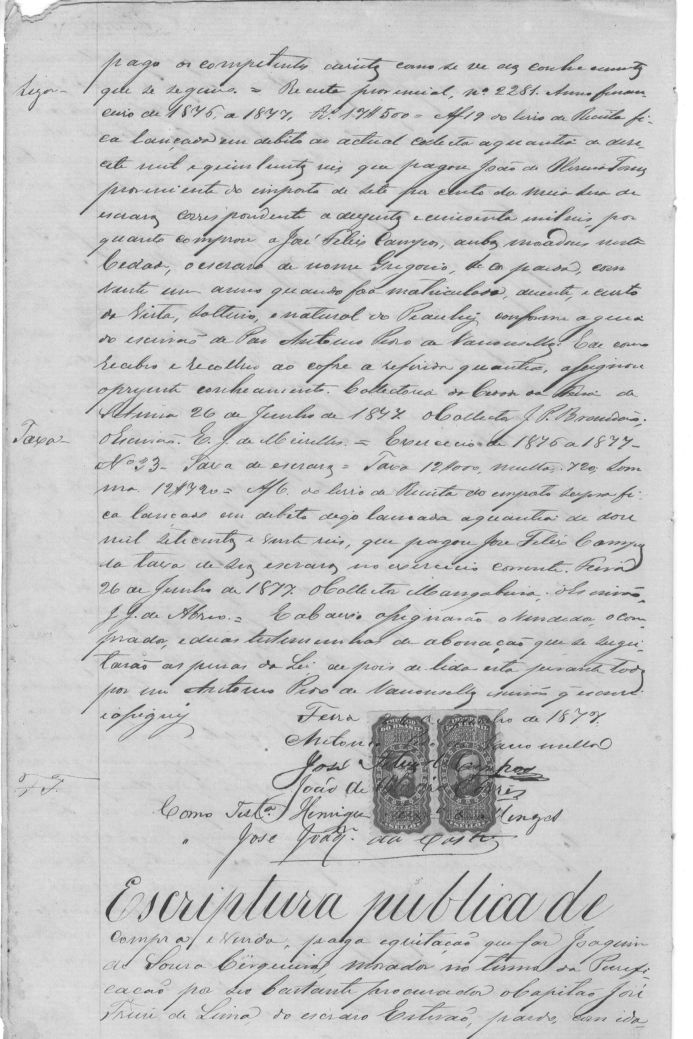 pago os competentes direitos como se ve dos conhecimentos
Siza
que se seguem. = Receita provincial, nº 2281. Anno finan
ceiro de 1876 a 1877. Rs 17$500 = Af 19 do livro de Receita fi
ca lançada em debito ao actual collector a quantia de desa
cete mil e quinhentos reis que pagou João de Torres
proveniente do imposto de sete por cento da meia siza de
escravos correspondente a duzentos e cincoenta mil reis, por
quanto comprou a José Felix Campos, ambos moradores nesta
Cidade, o escravo de nome Gregorio, de cor parda, com
vinte um annos quando foi matriculado, doente, e curto
da vista, solteiro, e natural do Piauhy conforme a guia
do escrivão de Paz Antonio Pedro de Vasconcellos. E de como
recebeo e recolheo ao cofre a referida quantia, assignou
o presente conhecimento. Collectoria da Feira de
26 de Junho de 1877. O Collector J. P. Brandão.
Taxa
O Escrivão. E. J. de Meirelles. = Exercicio de 1876 a 1877 -
Nº 33 - Taxa de escravos = Taxa 12$000, multa 720, som
ma 12$720 = Af 6. do livro de Receita do imposto supra fi
ca lançado em debito digo lançada a quantia de doze
mil setecentos e vinte reis, que pagou José Felix Campos
da taxa de seus escravos no exercicio corrente. Feira
26 de Junho de 1877. O Collector Mangabeira. O Escrivão,
J. J. de Abreo. = E abaixo assignarão o vendedor, o com
prador, e duas testemunhas de abonação que se sugei
tarão as penas da Lei depois de lida esta perante todos
por mim Antonio Pedro de Vasconcellos escrivão q escrevi
e assignei
Feira de 1877.
Antonio Vasconcellos
José Felix Campos
F. F.
João de Torres
Como Testas Henrique Menezes
" José Joaqm. da Costa
Escriptura publica de
compra e venda, paga e quitação que faz Joaquim
de Souza Cerqueira, morador no termo da Purifi
cação por seo bastante procurador o Capitão José
Freire de Lima, do escravo Estevão, pardo, com ida